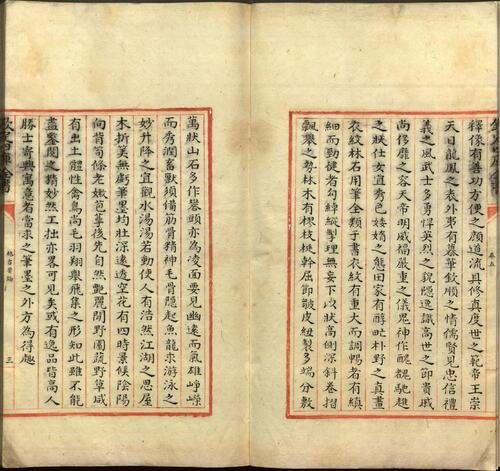 卷五
釋像有善功方便之顏道流具修真度世之範帝王崇
天日龍鳳之表外夷有慕華欽順之情儒賢見忠信禮
義之風武士多勇悍英烈之貌隱逸識高世之節貴戚
尚侈靡之容天帝明威福嚴重之儀鬼神作醜䰩馳趡
之狀仕女宜秀色婑媠之態田家有醇甿朴野之真畫
衣紋林石用筆全類于書衣紋有重大而調暢者有縝
細而勁健者勾綽縱掣理無妄下以狀高側深斜卷摺
飄舉之勢林木有樛枝挺幹屈節皴皮紐裂多端分敷
萬狀山石多作礬頭亦為凌面要見幽遠而氣雄崢嶸
而秀潤畜獸須備筋骨精神毛骨隱起魚龍求游泳之
妙升降之宜觀水湯湯若動使人有浩然江湖之思屋
木折美無虧筆墨均壯深遠透空花有四時景候陰陽
向背筍條老嫩苞萼後先自然艷麗閒野園蔬野草咸
有出土體性禽鳥尚毛羽翔舉飛集之形如此雖不能
盡鑒閱之精妙然工拙亦畧可見矣或有逸品皆高人
勝士寄興寓意者當求之筆墨之外方為得趣
格古要論
三